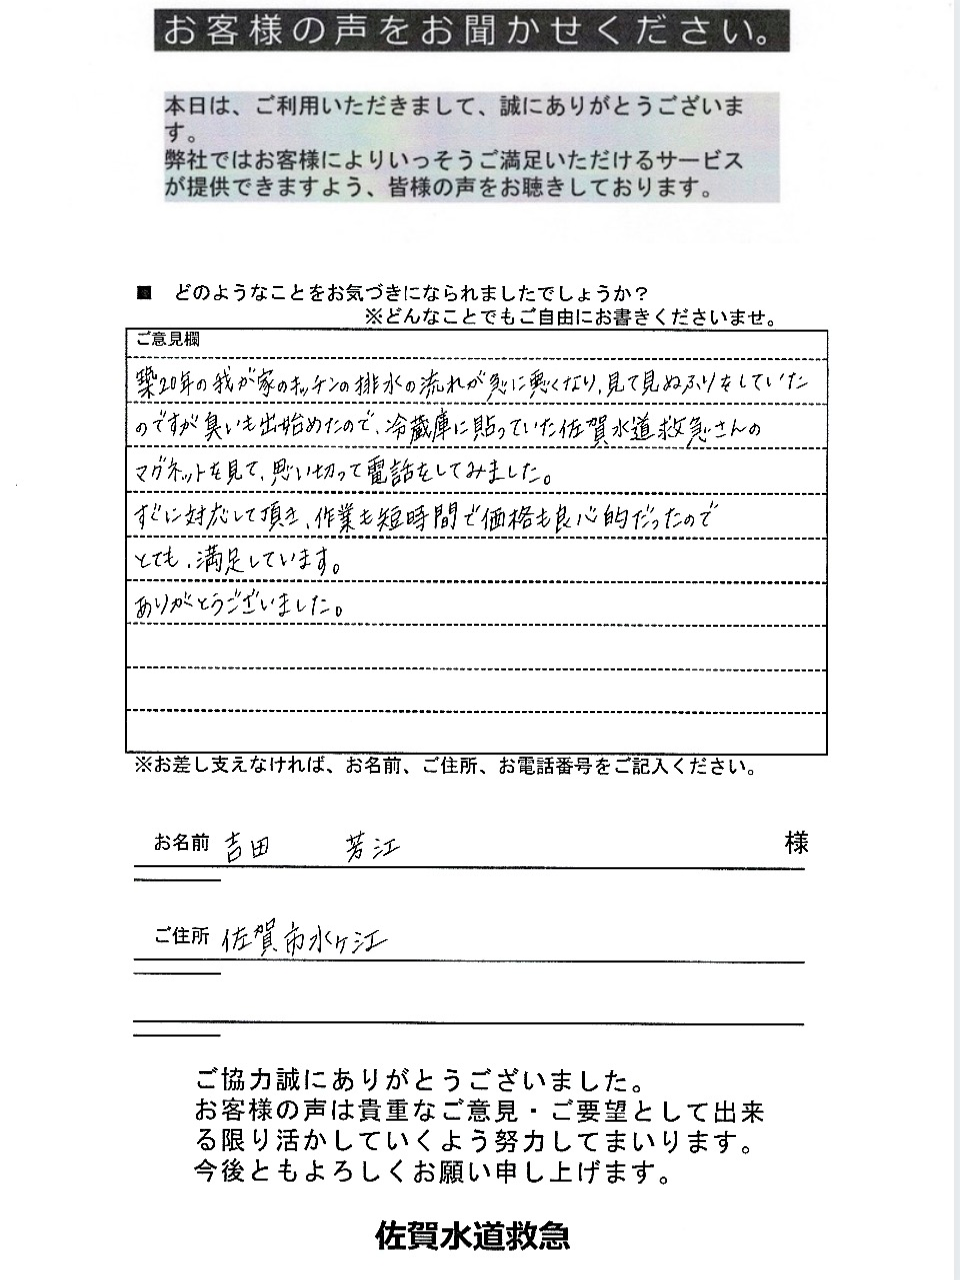 お客様の声をお聞かせください。
本日は、ご利用いただきまして、誠にありがとうございま
す。
弊社ではお客様によりいっそうご満足いただけるサービス
が提供できますよう、皆様の声をお聴きしております。
■ どのようなことをお気づきになられましたでしょうか？
※どんなことでもご自由にお書きくださいませ。
ご意見欄
築20年の我が家のキッチンの排水の流れが急に悪くなり、見て見ぬふりをしていた
のですが臭いも出始めたので、冷蔵庫に貼っていた佐賀水道救急さんの
マグネットを見て、思い切って電話をしてみました。
すぐに対応して頂き、作業も短時間で価格も良心的だったので
とても、満足しています。
ありがとうございました。
※お差し支えなければ、お名前、ご住所、お電話番号をご記入ください。
お名前 吉田 芳江 様
ご住所 佐賀市水ヶ江
ご協力誠にありがとうございました。
お客様の声は貴重なご意見・ご要望として出来
る限り活かしていくよう努力してまいります。
今後ともよろしくお願い申し上げます。
佐賀水道救急